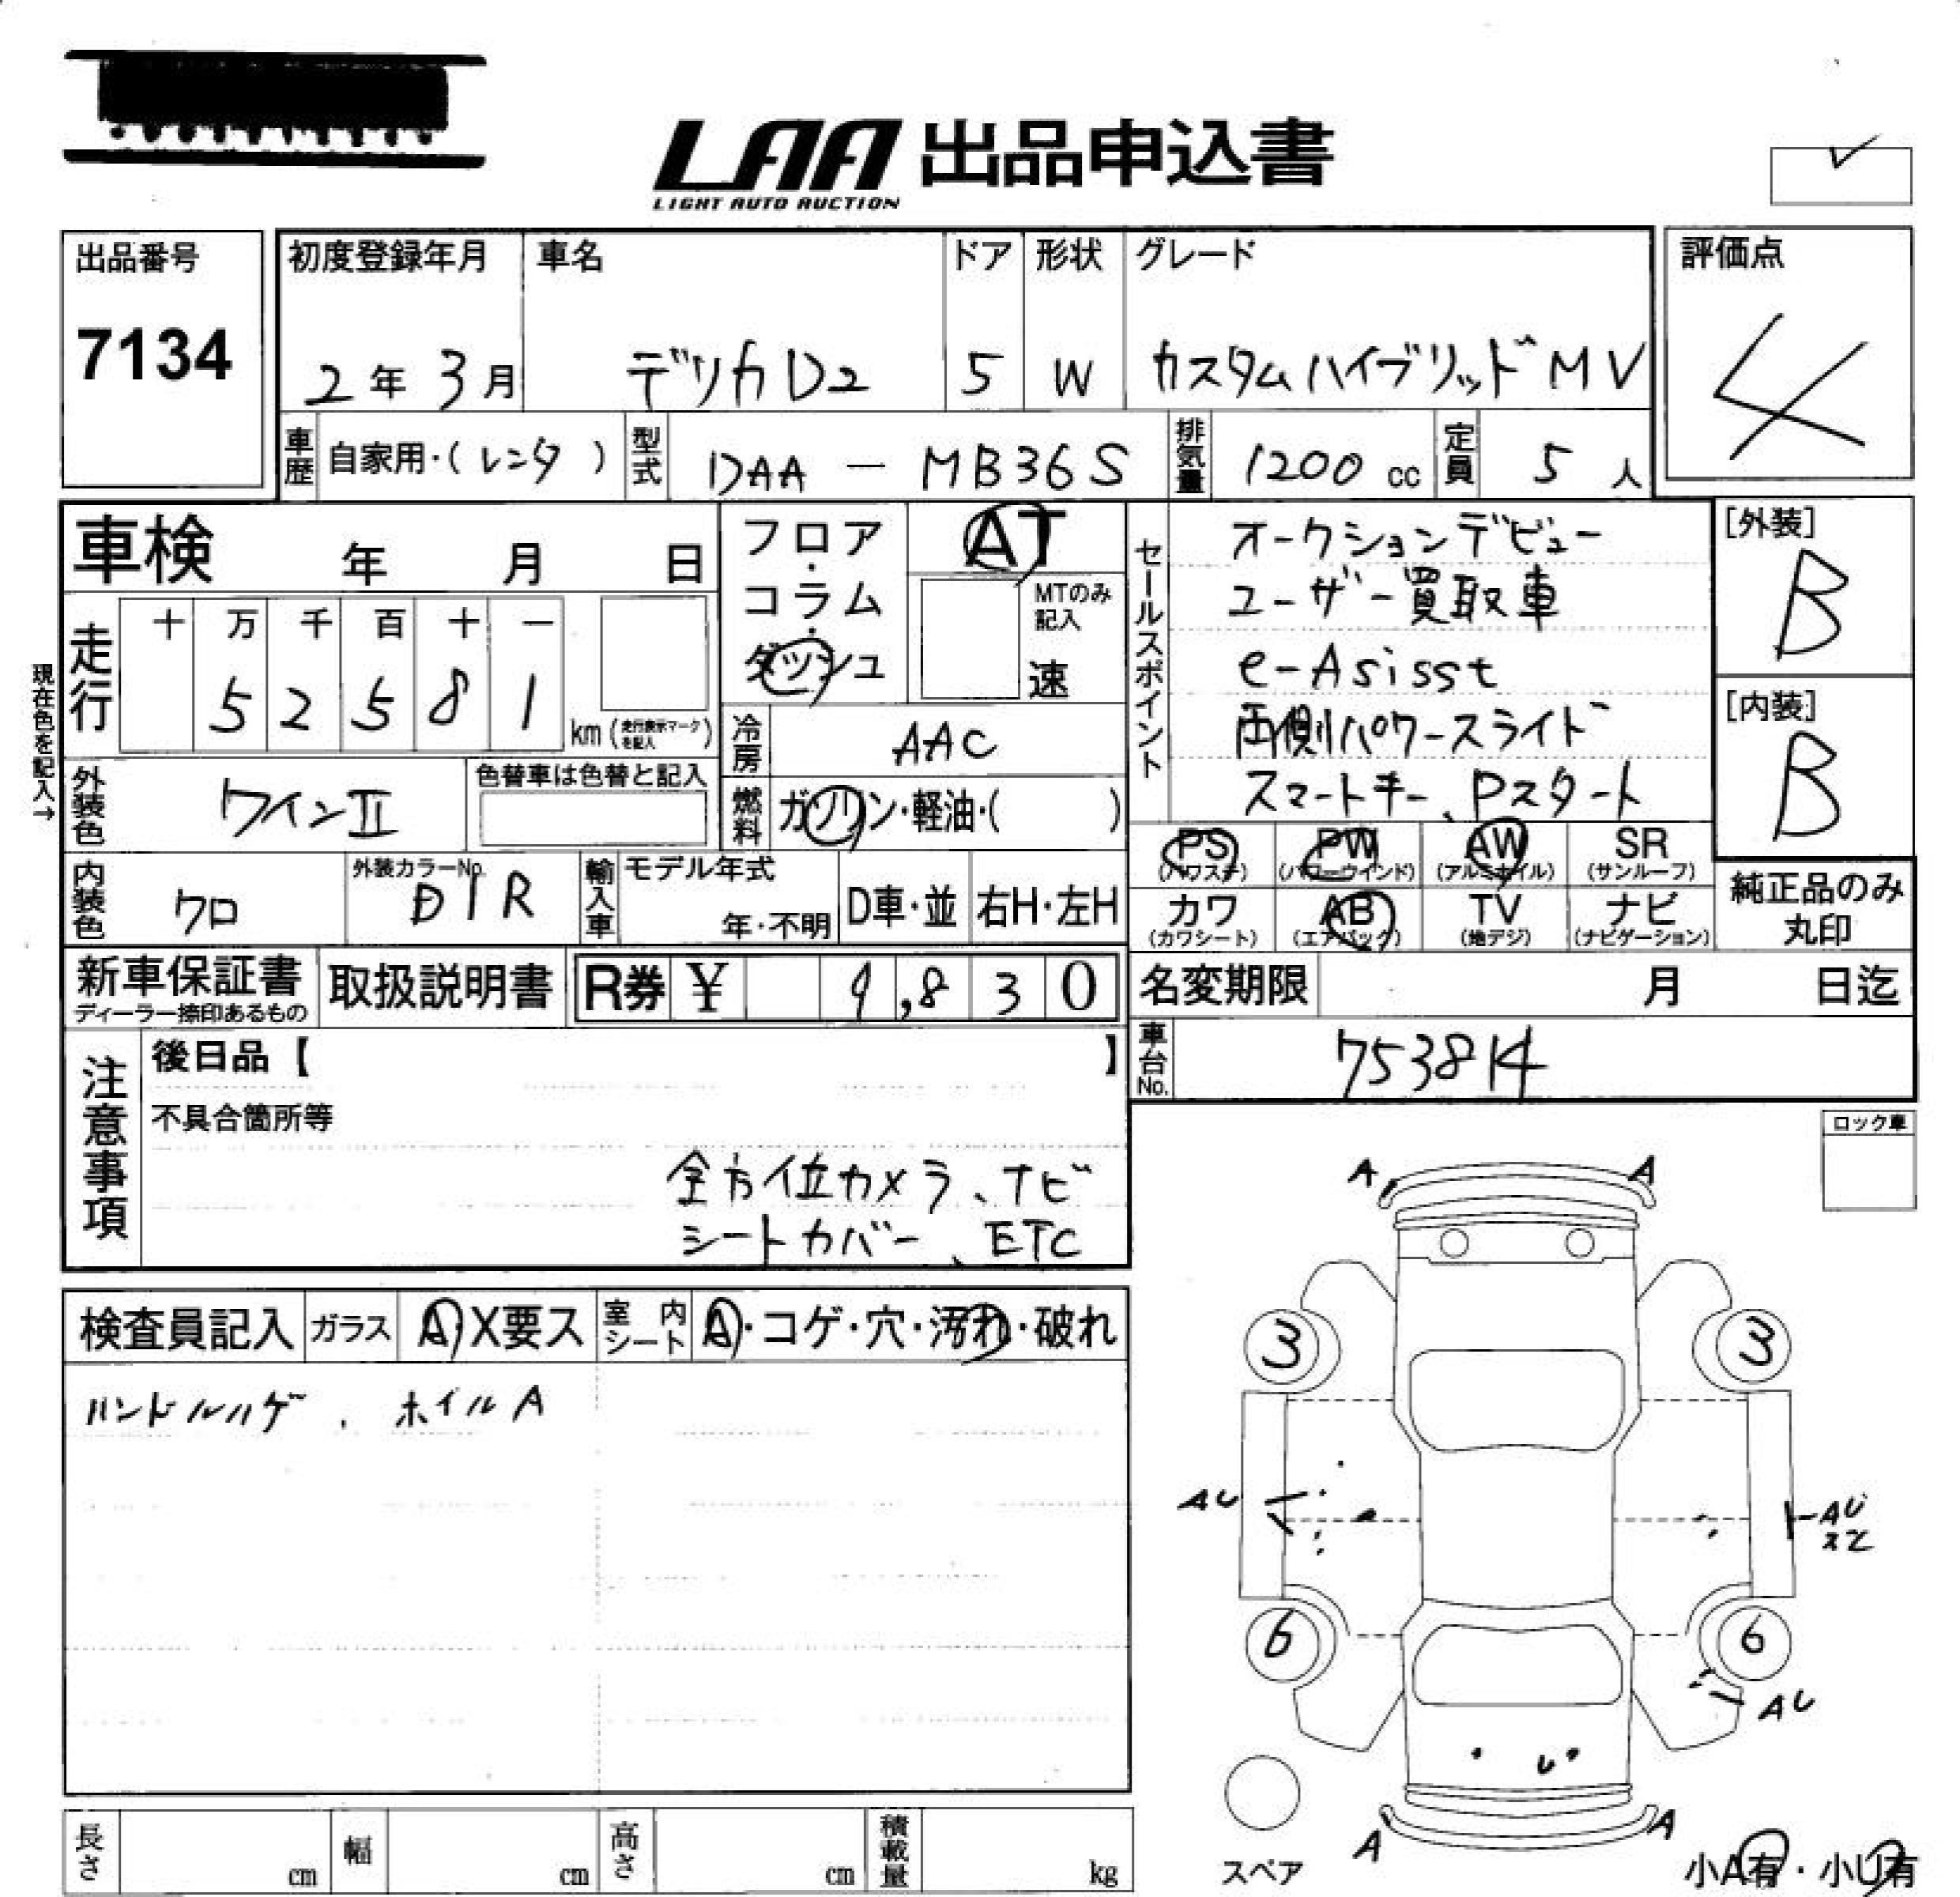 LAA 出品申込書
LIGHT AUTO AUCTION
出品番号
7134
初度登録年月
2年 3月
車名
デリカD2
ドア
5
形状
W
グレード
カスタムハイブリッドMV
評価点
4
車歴
自家用・(レンタ)
型式
DAA － MB36S
排気量
1200 cc
定員
5 人
車検 年 月 日
フロア・コラム・ダッシュ
AT
MTのみ記入
速
セールスポイント
オークションデビュー
ユーザー買取車
e-Asisst
両側パワースライド
スマートキー、Pスタート
[外装]
B
[内装]
B
現在色を記入→
走行
十 万 千 百 十 一
5 2 5 8 1
km (走行表示マークを記入)
冷房
AAC
外装色
ワインⅡ
色替車は色替と記入
燃料
ガソリン・軽油・( )
PS
(パワステ)
PW
(パワーウインド)
AW
(アルミホイル)
SR
(サンルーフ)
内装色
クロ
外装カラーNo.
D1R
輸入車
モデル年式
年・不明
D車・並
右H・左H
カワ
(カワシート)
AB
(エアバック)
TV
(地デジ)
ナビ
(ナビゲーション)
純正品のみ
丸印
新車保証書
ディーラー捺印あるもの
取扱説明書
R券 ¥ 9,830
名変期限 月 日迄
注意事項
後日品【 】
不具合箇所等
全方位カメラ、ナビ
シートカバー、ETC
車台No.
753814
ロック車
検査員記入
ガラス
A・X要ス
室内シート
A・コゲ・穴・汚れ・破れ
ハンドルハゲ、ホイルA
A A
3 3
AU
AU
スレ
6 6
AU
A A
スペア
小A有・小U有
長さ cm
幅 cm
高さ cm
積載量 kg